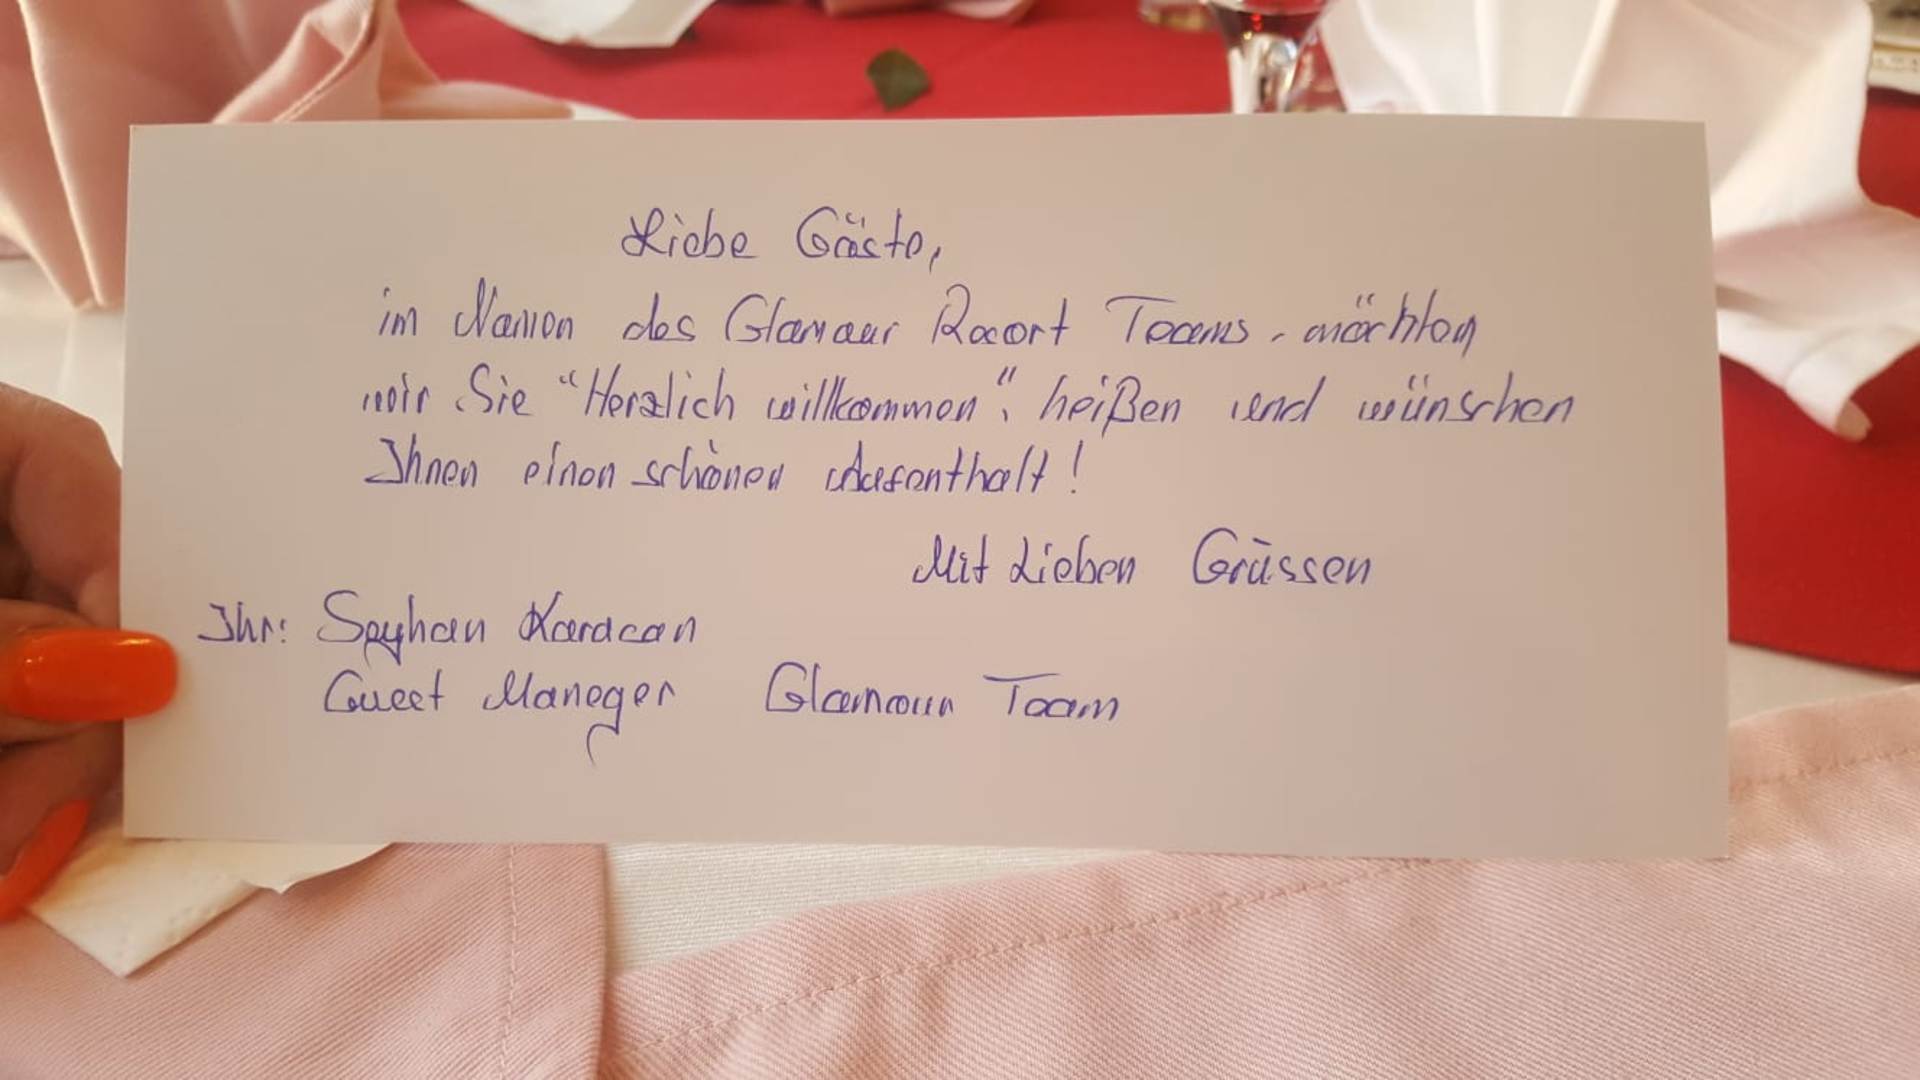 Liebe Gäste,
im Namen des Glamour Resort Teams, möchten
wir Sie "Herzlich willkommen". heißen und wünschen
Ihnen einen schönen Aufenthalt!
Mit Lieben Grüssen
Ihr: Seyhan Karacan
Guest Maneger Glamour Team